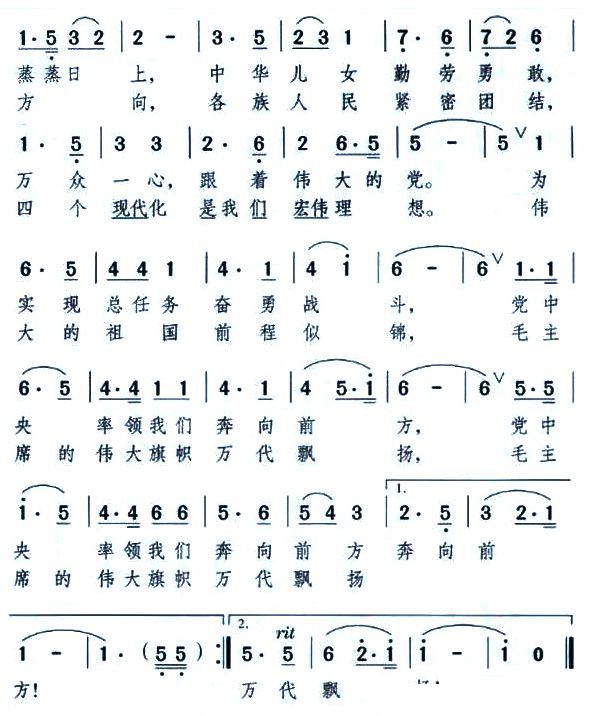 1·5 3 2 | 2 - | 3· 5 | 2 3 1 | 7· 6 | 7 2 6 |
蒸蒸日 上, 中华儿女勤劳勇敢,
方 向, 各族人民紧密团结,
1· 5 | 3 3 | 2· 6 | 2 6·5 | 5 - | 5 ∨ 1 |
万众一心, 跟着伟大的党。 为
四个现代化是我们宏伟理想。 伟
6· 5 | 4 4 1 | 4· 1 | 4 i | 6 - | 6 ∨ 1·1 |
实现总任务奋勇战斗, 党中
大的祖国前程似锦, 毛主
6· 5 | 4·4 1 1 | 4· 1 | 4 5·i | 6 - | 6 ∨ 5·5 |
央 率领我们奔向前方, 党中
席的伟大旗帜万代飘扬, 毛主
1.
i· 5 | 4·4 6 6 | 5· 6 | 5 4 3 | 2· 5 | 3 2·1 |
央 率领我们奔向前方奔向前
席的伟大旗帜万代飘扬
2. rit
1 - | 1· (5 5) :| 5· 5 | 6 2·i | i - | i 0 ‖
方! 万代飘